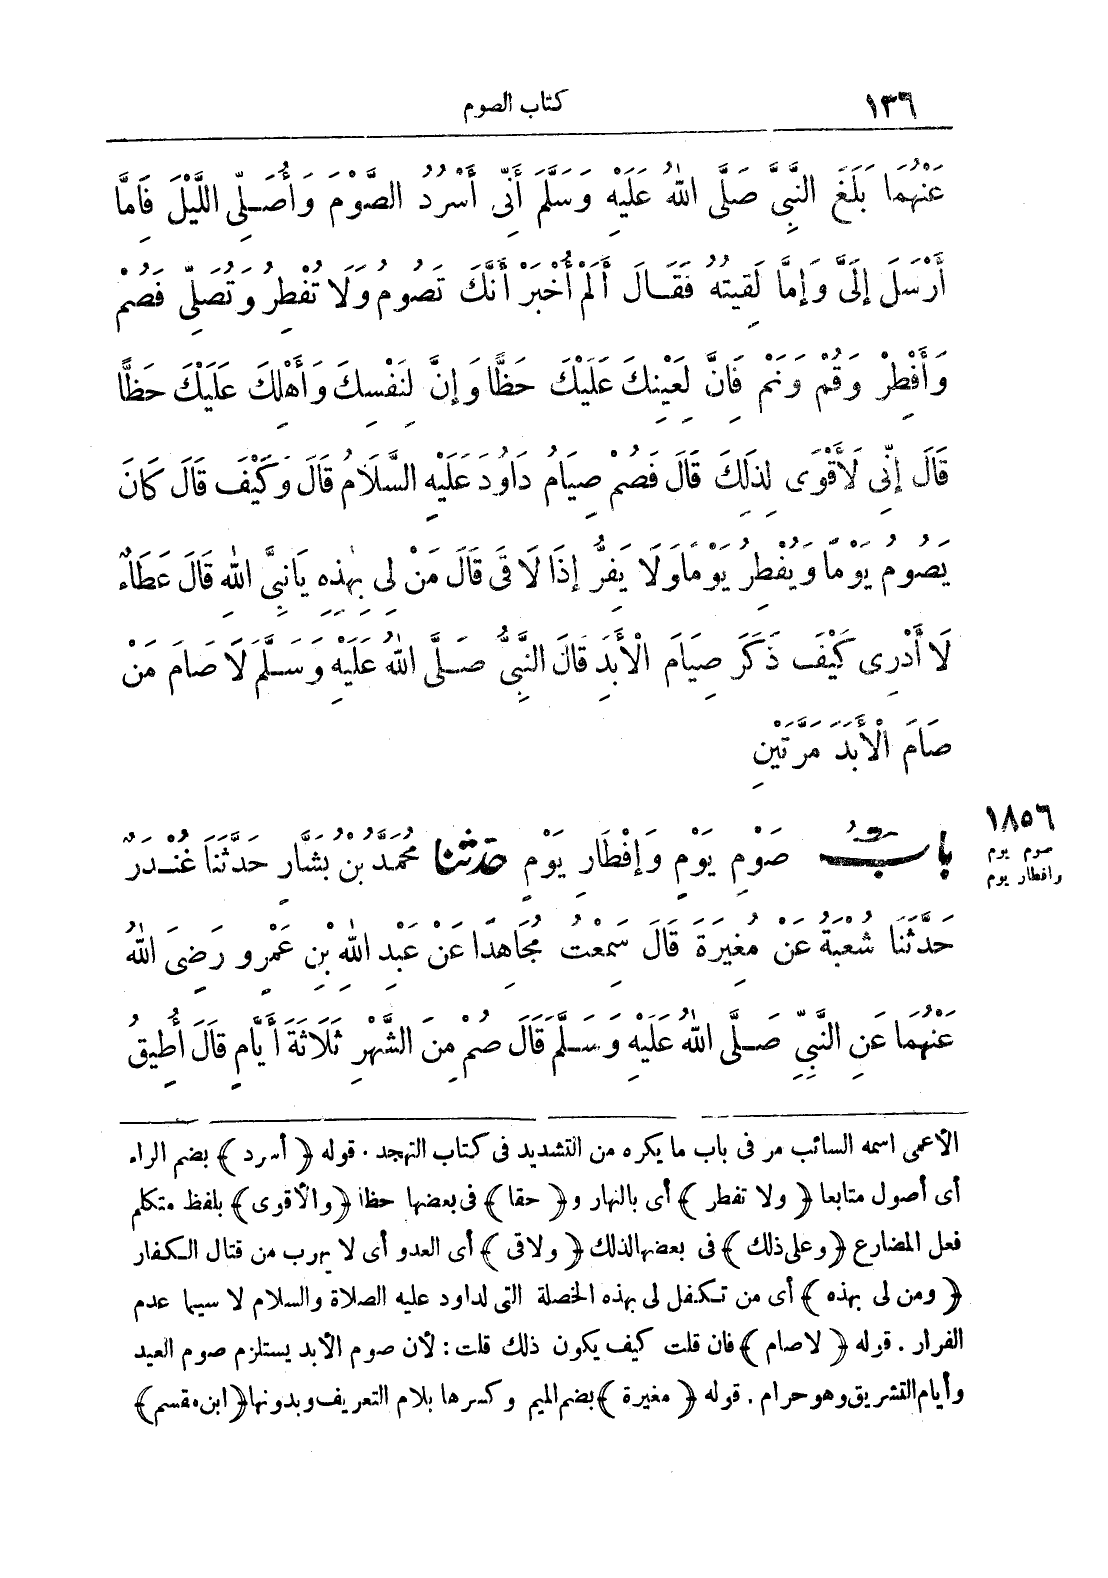 ١٣٦
كتاب الصوم
عَنْهُمَا بَلَغَ النَّبِيَّ صَلَّى اللهُ عَلَيْهِ وَسَلَّمَ أَنِّى أَسْرُدُ الصَّوْمَ وَأُصَلِّى اللَّيْلَ فَإِمَّا
أَرْسَلَ إِلَىَّ وَإِمَّا لَقِيتُهُ فَقَالَ أَلَمْ أُخْبَرْ أَنَّكَ تَصُومُ وَلَا تُفْطِرُ وَتُصَلِّى فَصُمْ
وَأَفْطِرْ وَقُمْ وَنَمْ فَإِنَّ لِعَيْنِكَ عَلَيْكَ حَظًّا وَإِنَّ لِنَفْسِكَ وَأَهْلِكَ عَلَيْكَ حَظًّا
قَالَ إِنِّى لَأَقْوَى لِذَلِكَ قَالَ فَصُمْ صِيَامُ دَاوُدَ عَلَيْهِ السَّلَامُ قَالَ وَكَيْفَ قَالَ كَانَ
يَصُومُ يَوْمًا وَيُفْطِرُ يَوْمًا وَلَا يَفِرُّ إِذَا لَاقَى قَالَ مَنْ لِى بِهٰذِهِ يَا نَبِىَّ اللهِ قَالَ عَطَاءٌ
لَا أَدْرِى كَيْفَ ذَكَرَ صِيَامَ الْأَبَدِ قَالَ النَّبِىُّ صَلَّى اللهُ عَلَيْهِ وَسَلَّمَ لَا صَامَ مَنْ
صَامَ الْأَبَدَ مَرَّتَيْنِ
١٨٥٦
صوم يوم
وافطار يوم
بَابُ صَوْمِ يَوْمٍ وَإِفْطَارِ يَوْمٍ حَدَّثَنَا مُحَمَّدُ بْنُ بَشَّارٍ حَدَّثَنَا غُنْدَرٌ
حَدَّثَنَا شُعْبَةُ عَنْ مُغِيرَةَ قَالَ سَمِعْتُ مُجَاهِدًا عَنْ عَبْدِ اللهِ بْنِ عَمْرٍو رَضِىَ اللهُ
عَنْهُمَا عَنِ النَّبِيِّ صَلَّى اللهُ عَلَيْهِ وَسَلَّمَ قَالَ صُمْ مِنَ الشَّهْرِ ثَلَاثَةَ أَيَّامٍ قَالَ أُطِيقُ
الأعمى اسمه السائب مر فى باب ما يكره من التشديد فى كتاب التهجد . قوله ﴿ أسرد ﴾ بضم الراء
أى أصول متابعا ﴿ ولا تفطر ﴾ أى بالنهار و﴿ حقا ﴾ فى بعضها حظا ﴿ والأقوى ﴾ بلفظ متكلم
فعل المضارع ﴿ وعلى ذلك ﴾ فى بعضها لذلك ﴿ ولاقى ﴾ أى العدو أى لا يهرب من قتال الكفار
﴿ ومن لى بهذه ﴾ أى من تكفل لى بهذه الخصلة التى لداود عليه الصلاة والسلام لا سيما عدم
الفرار . قوله ﴿ لا صام ﴾ فان قلت كيف يكون ذلك قلت : لأن صوم الأبد يستلزم صوم العيد
وأيام التشريق وهو حرام . قوله ﴿ مغيرة ﴾ بضم الميم وكسرها بلام التعريف وبدونها ﴿ ابن مقسم ﴾